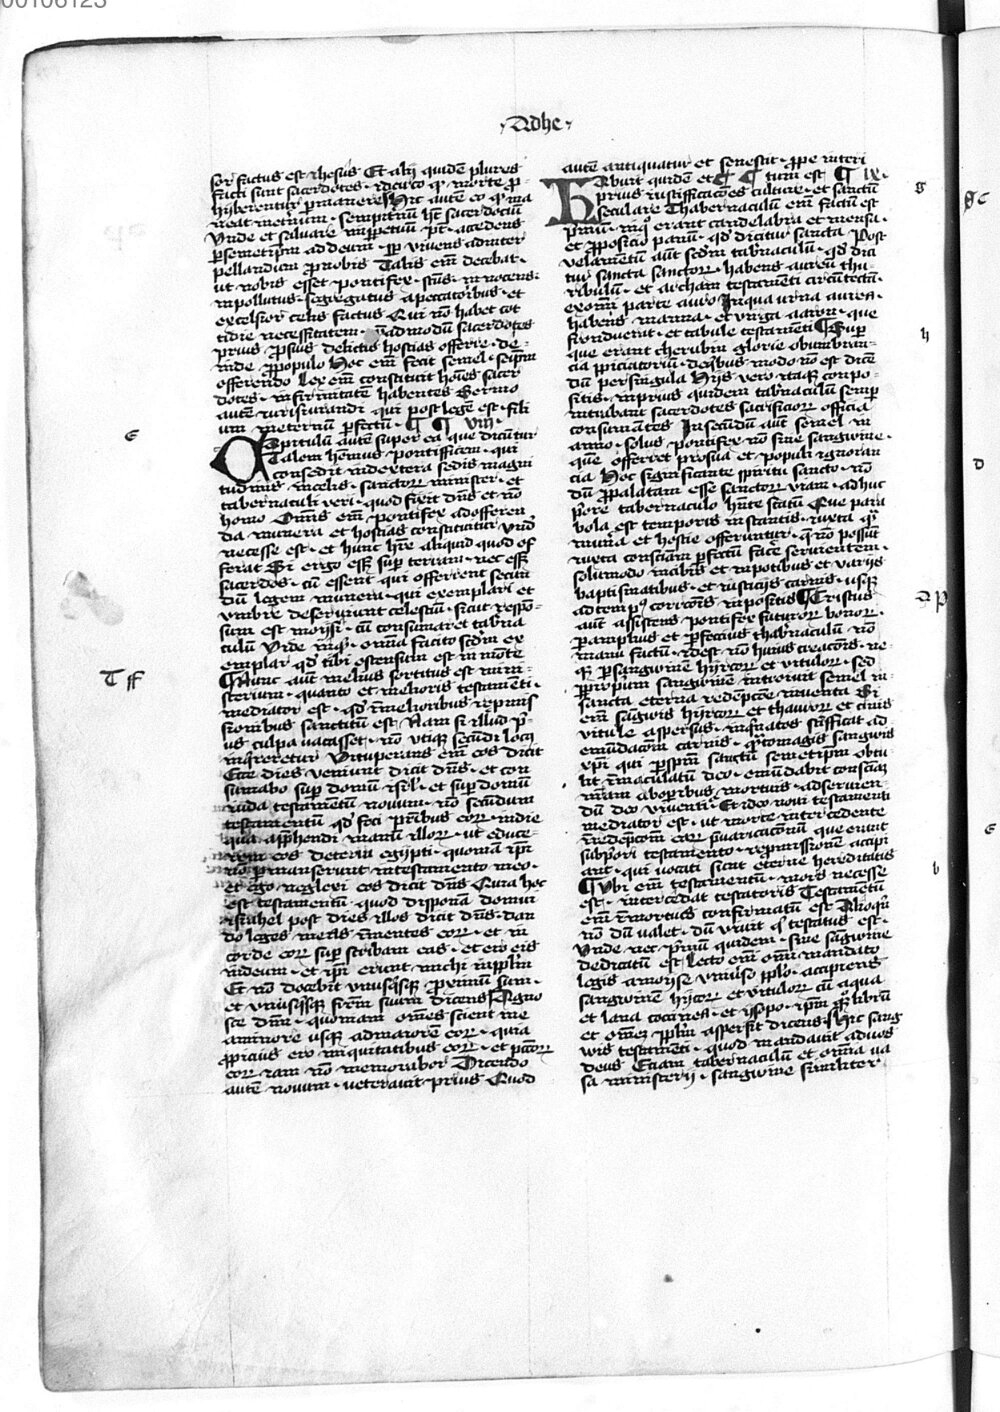 00106123
·Adhe·
sor factus est ihesus Et alij quidē plures
facti sunt sacerdotes · idcirco qͥ morte ꝓ
hiberentur ꝑmanere Hic autē eo qͥ ma
neat ineternum · sempiternū hꝫ sacerdociū
Vnde et saluare inꝑpetuū pt̄ · accedens
ꝑsemetipm̄ addeum · sꝑ viuens adinter
pellandum ꝓnobis Talis em̄ decebat ·
ut nobis esset pontifex · sc̄us · innocens ·
inpollutus · segregatus apeccatoribus · et
excelsior celis factus Qui nō habet cot
tidie necessitatem · qͥadmodū sacerdotes
prius ꝓsuis delictis hostias offerre · de-
inde ꝓpopulo Hoc em̄ fecit semel · seipm̄
offerendo Lex em̄ constituit hoīes sacer
dotes · infirmitatē habentes Sermo
autē iurisiurandi qui post legē est · fili
um ineternū ꝑfectū · ¶ ¶ viij ·
Capitulū autē super ea que dicūtur
Talem hēmus pontificem · qui
consedit indextera sedis magni
tudinis incelis · sanctoꝝ minister · et
tabernaculi veri · quod fixit dn̄s et nō
homo Omnis em̄ pontifex adofferen
da munera et hostias constituitur vnd̄
necesse est · et hunc hr̄e aliquid quod of
ferat Si ergo eſꝫ suꝑ terram · nec eſꝫ
sacerdos · cū essent qui offerrent secun
dū legem munera · qui exemplari et
vmbre deseruiunt celestiū · sicut respō-
sum est moysi · cū consumaret taber̄na
culū Vide inqͥ · omnia facito scdm̄ ex
emplar qd̄ tibi ostensum est in mōte
¶ Nunc aut̄ melius sortitus est mini-
sterium · quanto et melioris testamēti ·
mediator est · qd̄ īmelioribus repmis
sionibus sanctitū est Nam si illud p̄-
us culpa vacasset · nō vtiqꝫ secūdi locꝰ
inqͥreretur Vituperans em̄ eos dicit
Ecce dies veniunt dicit dn̄s · et con
sumabo suꝑ domū isrl̄ · et suꝑ domū
iuda testamētū nouum · nō secundum
testamentū qd̄ feci pr̄ibus eoꝝ · indie
qua apphendi manū illoꝝ · ut educe-
rem eos deterra egipti · quoniā ipi̅
nō ꝑmanserunt intestamento meo ·
et ego neglexi eos dicit dn̄s Quia hoc
est testamentū quod disponā domui
israhel post dies illos dicit dn̄s · dan
do leges meas īmentes eoꝝ · et in
corde eoꝝ suꝑ scribam eas · et ero eis
indeum · et ipi̅ erunt michi inpplm̄
Et nō docebit vnusqͥsqꝫ ꝓximū suum ·
et vnusqͥsqꝫ frēm suum dicens Cogno
sce dn̄m · quoniam om̄es scient me
aminore usqꝫ admaiorē eoꝝ · quia
ꝓpicius ero iniquitatibus eoꝝ · et pctōꝝ
eoꝝ iam nō memorabor Dicendo
autē nouum · veterauit prius Quod
autē antiquatur et senescit · ꝓpe interi
tum est ¶ ix ·
Habuit quidē et ¶ ¶
prius iustifficacōes culture · et sanctū
seculare Thabernaculū em̄ factū est
prim̄u · inqͥ erant candelabra et mensa ·
et ꝓposicio panū · qd̄ dicitur sancta Post
velamentū aut̄ scdm̄ tab̄rnaculū · qd̄ dici
tur sancta sanctoꝝ · habens aureū thu
ribulū · et archam testamēti circūtectū ·
exomi̅ parte auro Inqua vrna aurea ·
habens manna · et virga aaron · que
fronduerat · et tabule testamēti ¶ Suꝑ
que erant cherubin glorie obumbran-
cia ꝓpiciatoriū · deqͥbus modo nō est dicē
dū persingula Hijs vero itaqꝫ conpo-
sitis · inprius quidem tab̄rnaculū semꝑ
intrabant sacerdotes sacrificioꝝ officia
consumātes Insecūdū aut̄ semel in
anno · solus pontifex nō sine sanguine ·
quē offerret prosua et populi ignoran
cia Hoc significante spiritū sancto · nō
dū ꝓpalatam esse sanctoꝝ viam · adhuc
pͥore tabernaculo hn̄te statū Que para
bola est temporis instantis · iuxta qͣ
mun̄ra et hostie offeruntur · q̄ nō possūt
iuxta consciām ꝑfectū facē seruientem ·
solūmodo incibis et inpotibus et varijs
baptismatibus · et iusticijs carnis · usqꝫ
adtempꝰ correcōis inpositis ¶ Cristus
aut̄ assistens pontifex futuroꝝ bonoꝝ ·
ꝑamplius et ꝑfectius thab̄rnaculū nō
manu factū · idest nō huius creacōis · ne-
qꝫ ꝑsanguinē hyrcoꝝ et vituloꝝ · sed
ꝑpropͥum sanguinē introiuit semel in-
sancta eterna redēpcōe inuenta Si
em̄ san̄guis hyrcoꝝ et thauroꝝ et cinis
vitule aspersus · inqͥnatos sc̄ifficat ad
emūdacōm carnis · qͣtomagis sanguis
xp̄i qui ꝑspm̄ sanctū semetipm̄ obtu
lit īmaculatū deo · emūdabit consciāz
n̄ram aboꝑibus mortuis · adseruien-
dū deo viuenti Et ideo noui testamenti
mediator est · ut morte intercedente
īredēpcōem eaꝝ p̄uaricacōnū que erant
subpͥori testamento · repromissionē accipi
ant · qui vocati sunt eterne hereditatis
¶ Vbi em̄ testamentū · mors necesse
est · intercedat testatoris Testamētū
em̄ īmortuis confirmatū est Alioqͥn
nō dū valet · dū viuit qͥ testatus est ·
Vnde nec prim̄ū quidem · sine sāguine
dedicatū est Lecto em̄ omi̅ mandato
legis amoyse vniuso pplo · accipiens
sanguinē hircoꝝ et vituloꝝ cū aqua
et lana coccinea · et ysopo · ipm̄ qͦqꝫ librū
et omēꝫ pplm̄ aspersit dicens Hic sang
wis testamēti · quod mandauit aduos
deus Etiam tabernaculū et omīa va
sa ministerij · sanguine similiter